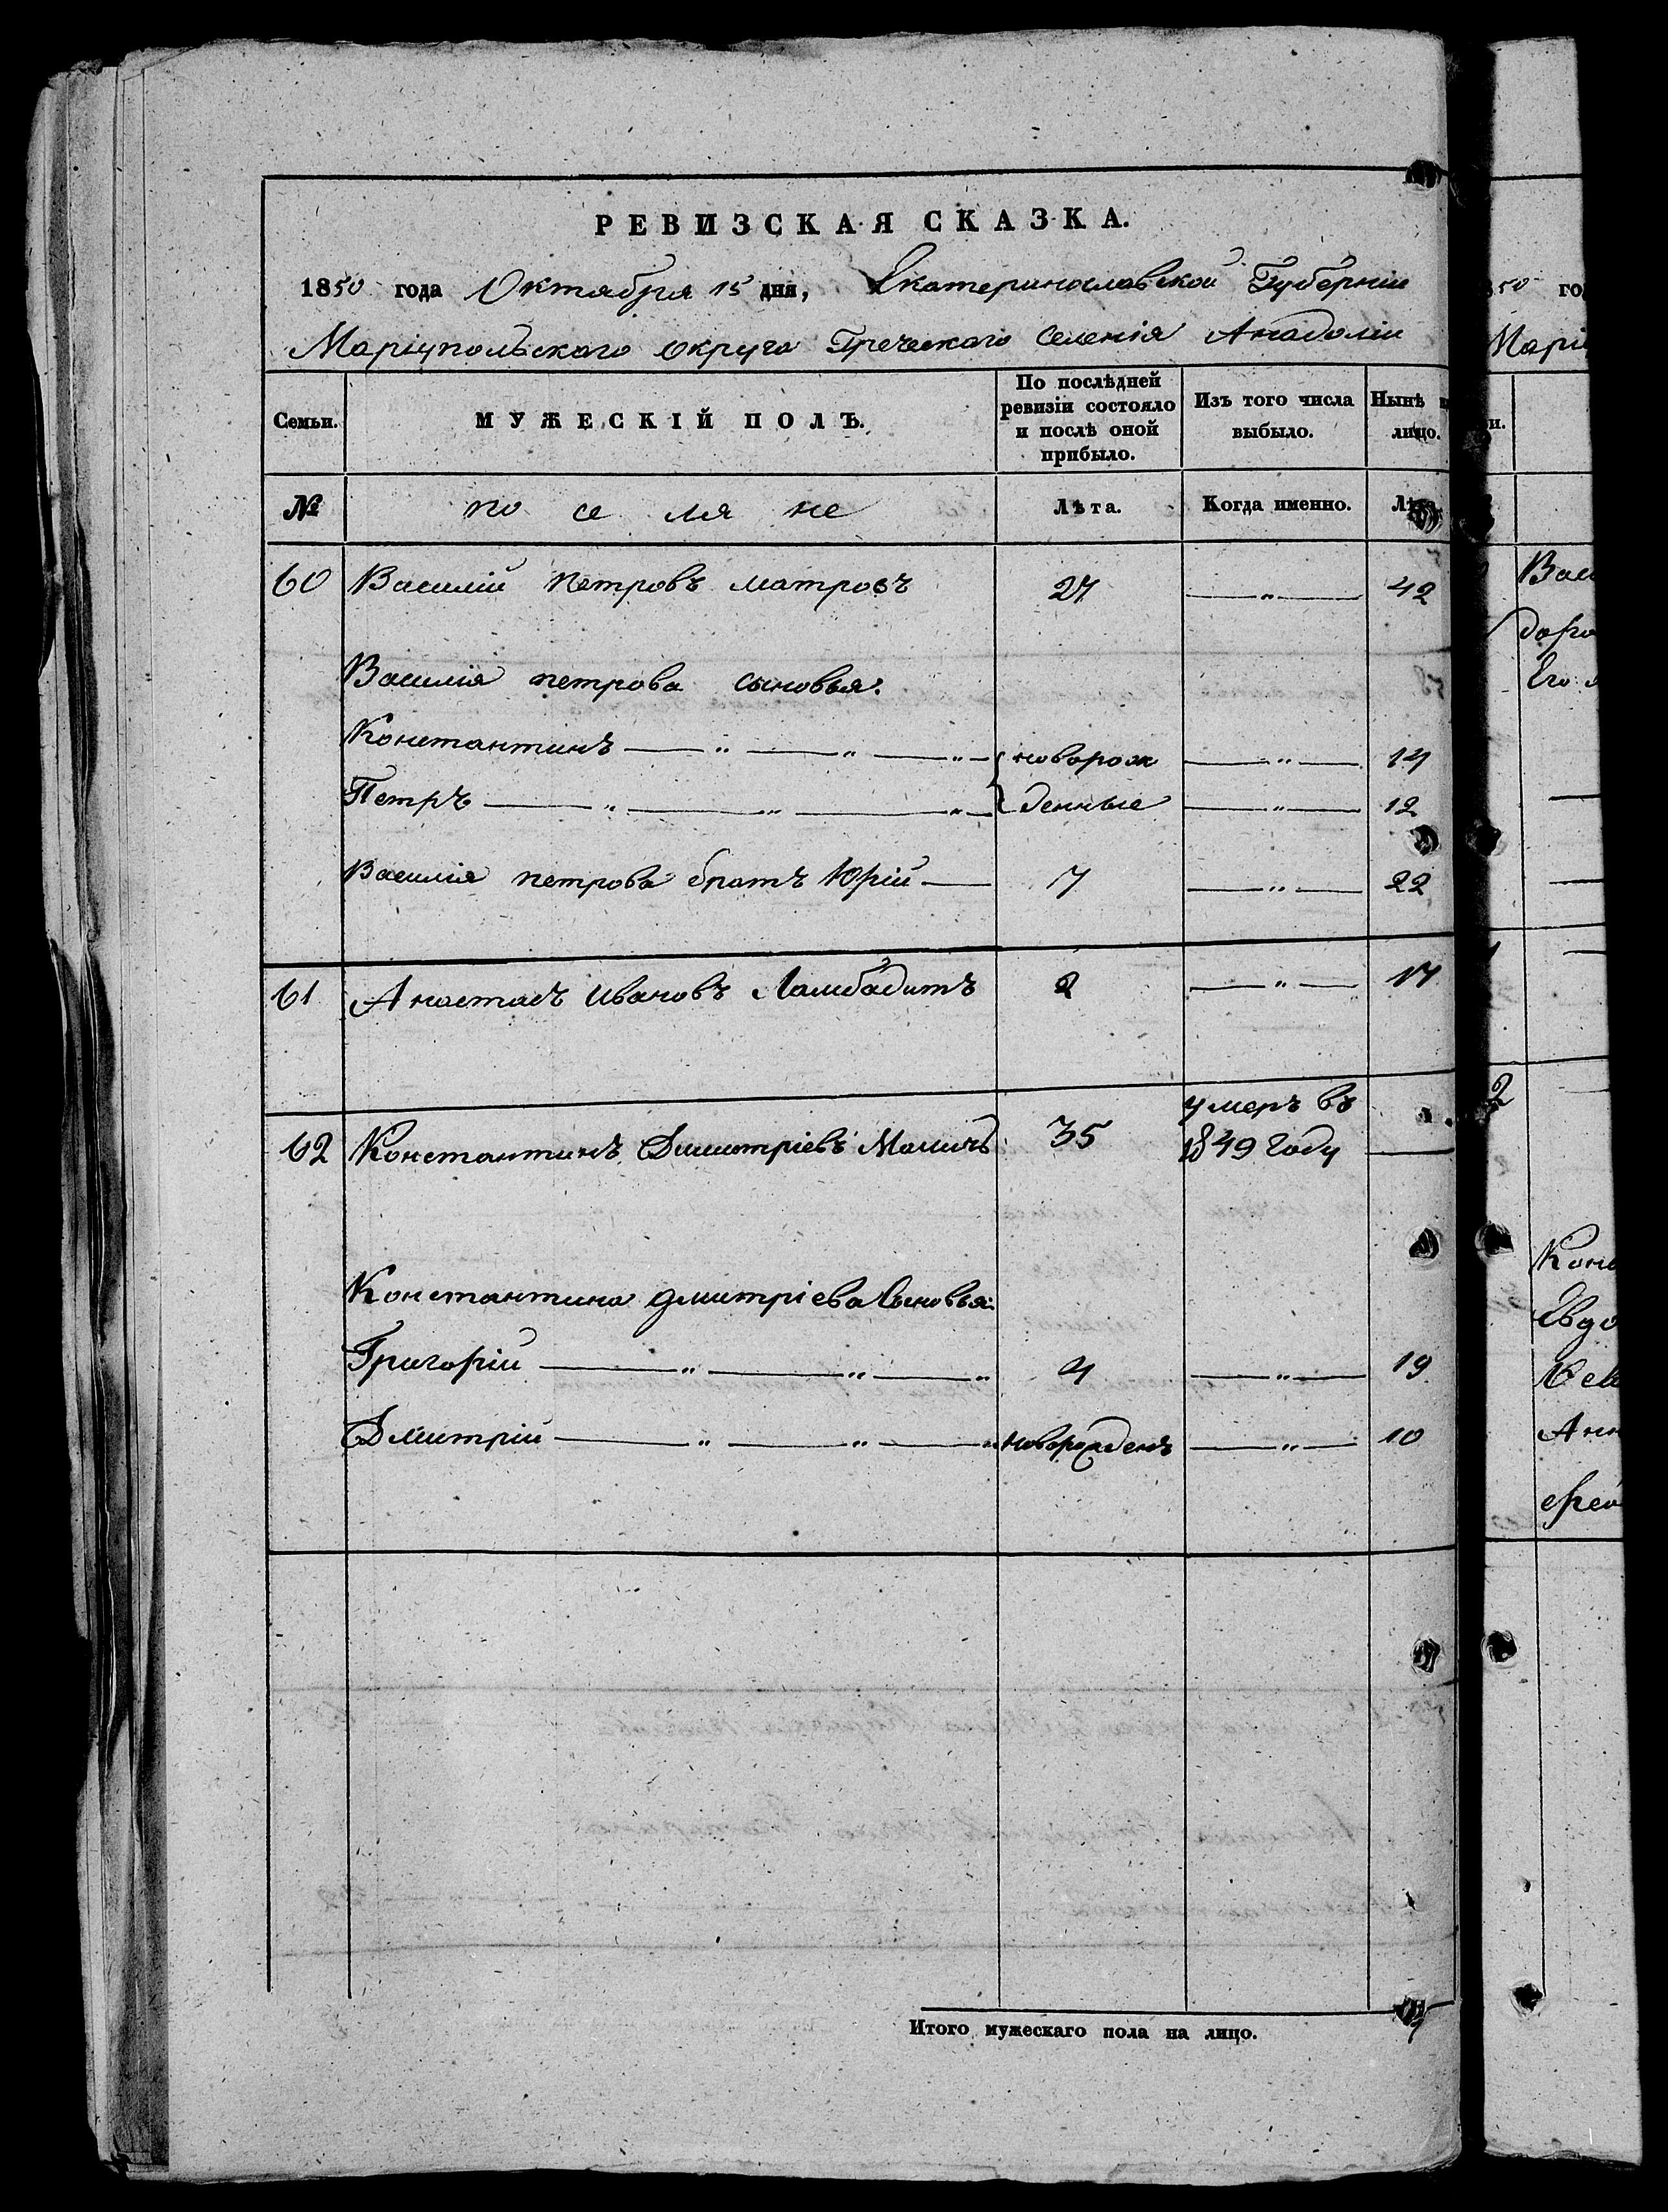 РЕВИЗСКАЯ СКАЗКА.
1850 года Октября 15 дня, Екатеринославской Губерніи
Маріупольскаго округа Греческаго Селенія Анадоліи
Семьи. МУЖЕСКІЙ ПОЛЪ. По послѣдней ревизіи состояло и послѣ оной прибыло. Изъ того числа выбыло. Нынѣ лицо.
№ поселяне Лѣта. Когда именно.
60 Василій Петровъ матросъ 27 —„— 42
Василія петрова сыновья:
Константинъ — „ — „ — „ — { новорож —„— 14
Петръ — „ — „ — „ — { денные —„— 12
Василія петрова братъ Юрій — 7 —„— 22
61 Анастасъ Ивановъ Ламбадитъ 2 —„— 17
62 Константинъ Дмитріевъ 35 умеръ въ 1849 году —
Константина дмитріева Сыновья:
Григорій — „ — „ — „ 4 —„— 19
Дмитрій — „ — „ — „ новорожденъ —„— 10
Итого мужескаго пола на лицо.
50 го
Марі
Вас
Его
2
Конс
Евдо
Анн